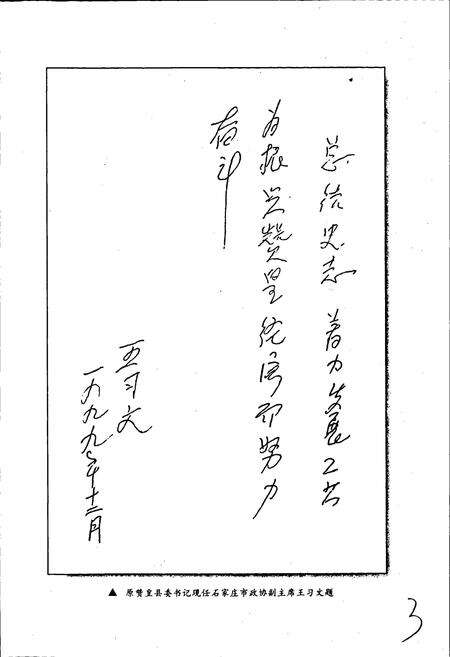 总结史志 着力发展工业
为振兴赞皇经济而努力
奋斗
王习文
一九九九年十二月
▲ 原赞皇县委书记现任石家庄市政协副主席王习文题
3